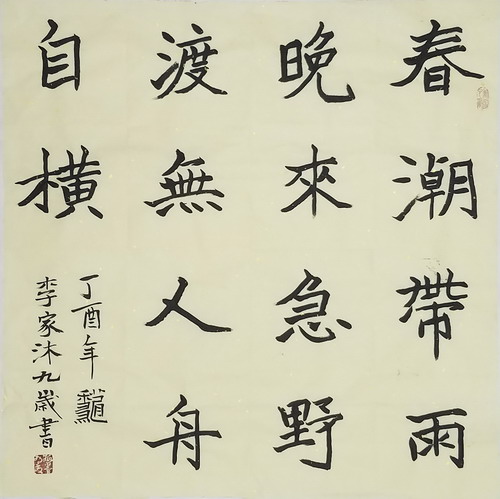 春潮帶雨
晚來急野
渡無人舟
自橫
丁酉年龝
李家沐九歲書